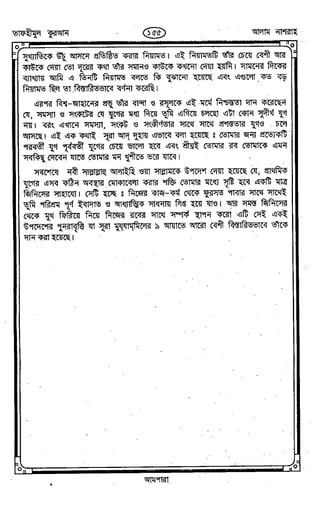 তাফহীমুল কুরআন
১৫৫
আলাম নাশরাহ
সুখ্যাতিকে উঁচু আসনে প্রতিষ্ঠিত করার নিয়ামত। এই নিয়ামতটি তাঁর চেয়ে বেশী আর
কাউকে দেয়া তো দূরের কথা তাঁর সমানও কাউকে কখনো দেয়া হয়নি। সামনের দিকের
ব্যাখ্যায় আমি এ তিনটি নিয়ামত বলতে কি বুঝানো হয়েছে এবং এগুলো কত বড়
নিয়ামত ছিল তা বিস্তারিতভাবে বর্ণনা করেছি।
এরপর বিশ্ব-জাহানের প্রভু তাঁর বান্দা ও রসূলকে এই মর্মে নিশ্চয়তা দান করেছেন
যে, সমস্যা ও সংকটের যে যুগের মধ্য দিয়ে তুমি এগিয়ে চলছো এটা কোন সুদীর্ঘ যুগ
নয়। বরং এখানে সমস্যা, সংকট ও সংকীর্ণতার সাথে সাথে প্রশস্ততার যুগও চলে
আসছে। এই এক কথাই সূরা আদ্ দুহায় এভাবে বলা হয়েছে : তোমার জন্য প্রত্যেকটি
পরবর্তী যুগ পূর্ববর্তী যুগের চেয়ে ভালো হবে এবং শীঘ্রই তোমার রব তোমাকে এমন
সবকিছু দেবেন যাতে তোমার মন খুশীতে ভরে যাবে।
সবশেষে নবী সাল্লাল্লাহু আলাইহি ওয়া সাল্লামকে উপদেশ দেয়া হয়েছে যে, প্রাথমিক
যুগের এসব কঠিন অবস্থার মোকাবেলা করার শক্তি তোমার মধ্যে সৃষ্টি হবে একটি মাত্র
জিনিসের সাহায্যে। সেটি হচ্ছে : নিজের কাজ-কর্ম থেকে ফুরসত পাবার সাথে সাথেই
তুমি পরিশ্রম পূর্ণ ইবাদাত ও আধ্যাত্মিক সাধনায় লিপ্ত হয়ে যাও। আর সমস্ত জিনিসের
থেকে মুখ ফিরিয়ে নিয়ে নিজের রবের সাথে সম্পর্ক স্থাপন করো এটি সেই একই
উপদেশের পুনরাবৃত্তি যা সূরা মুয্‌যাম্মিলের ৯ আয়াতে আরো বেশী বিস্তারিতভাবে তাঁকে
দান করা হয়েছে।
আমপারা